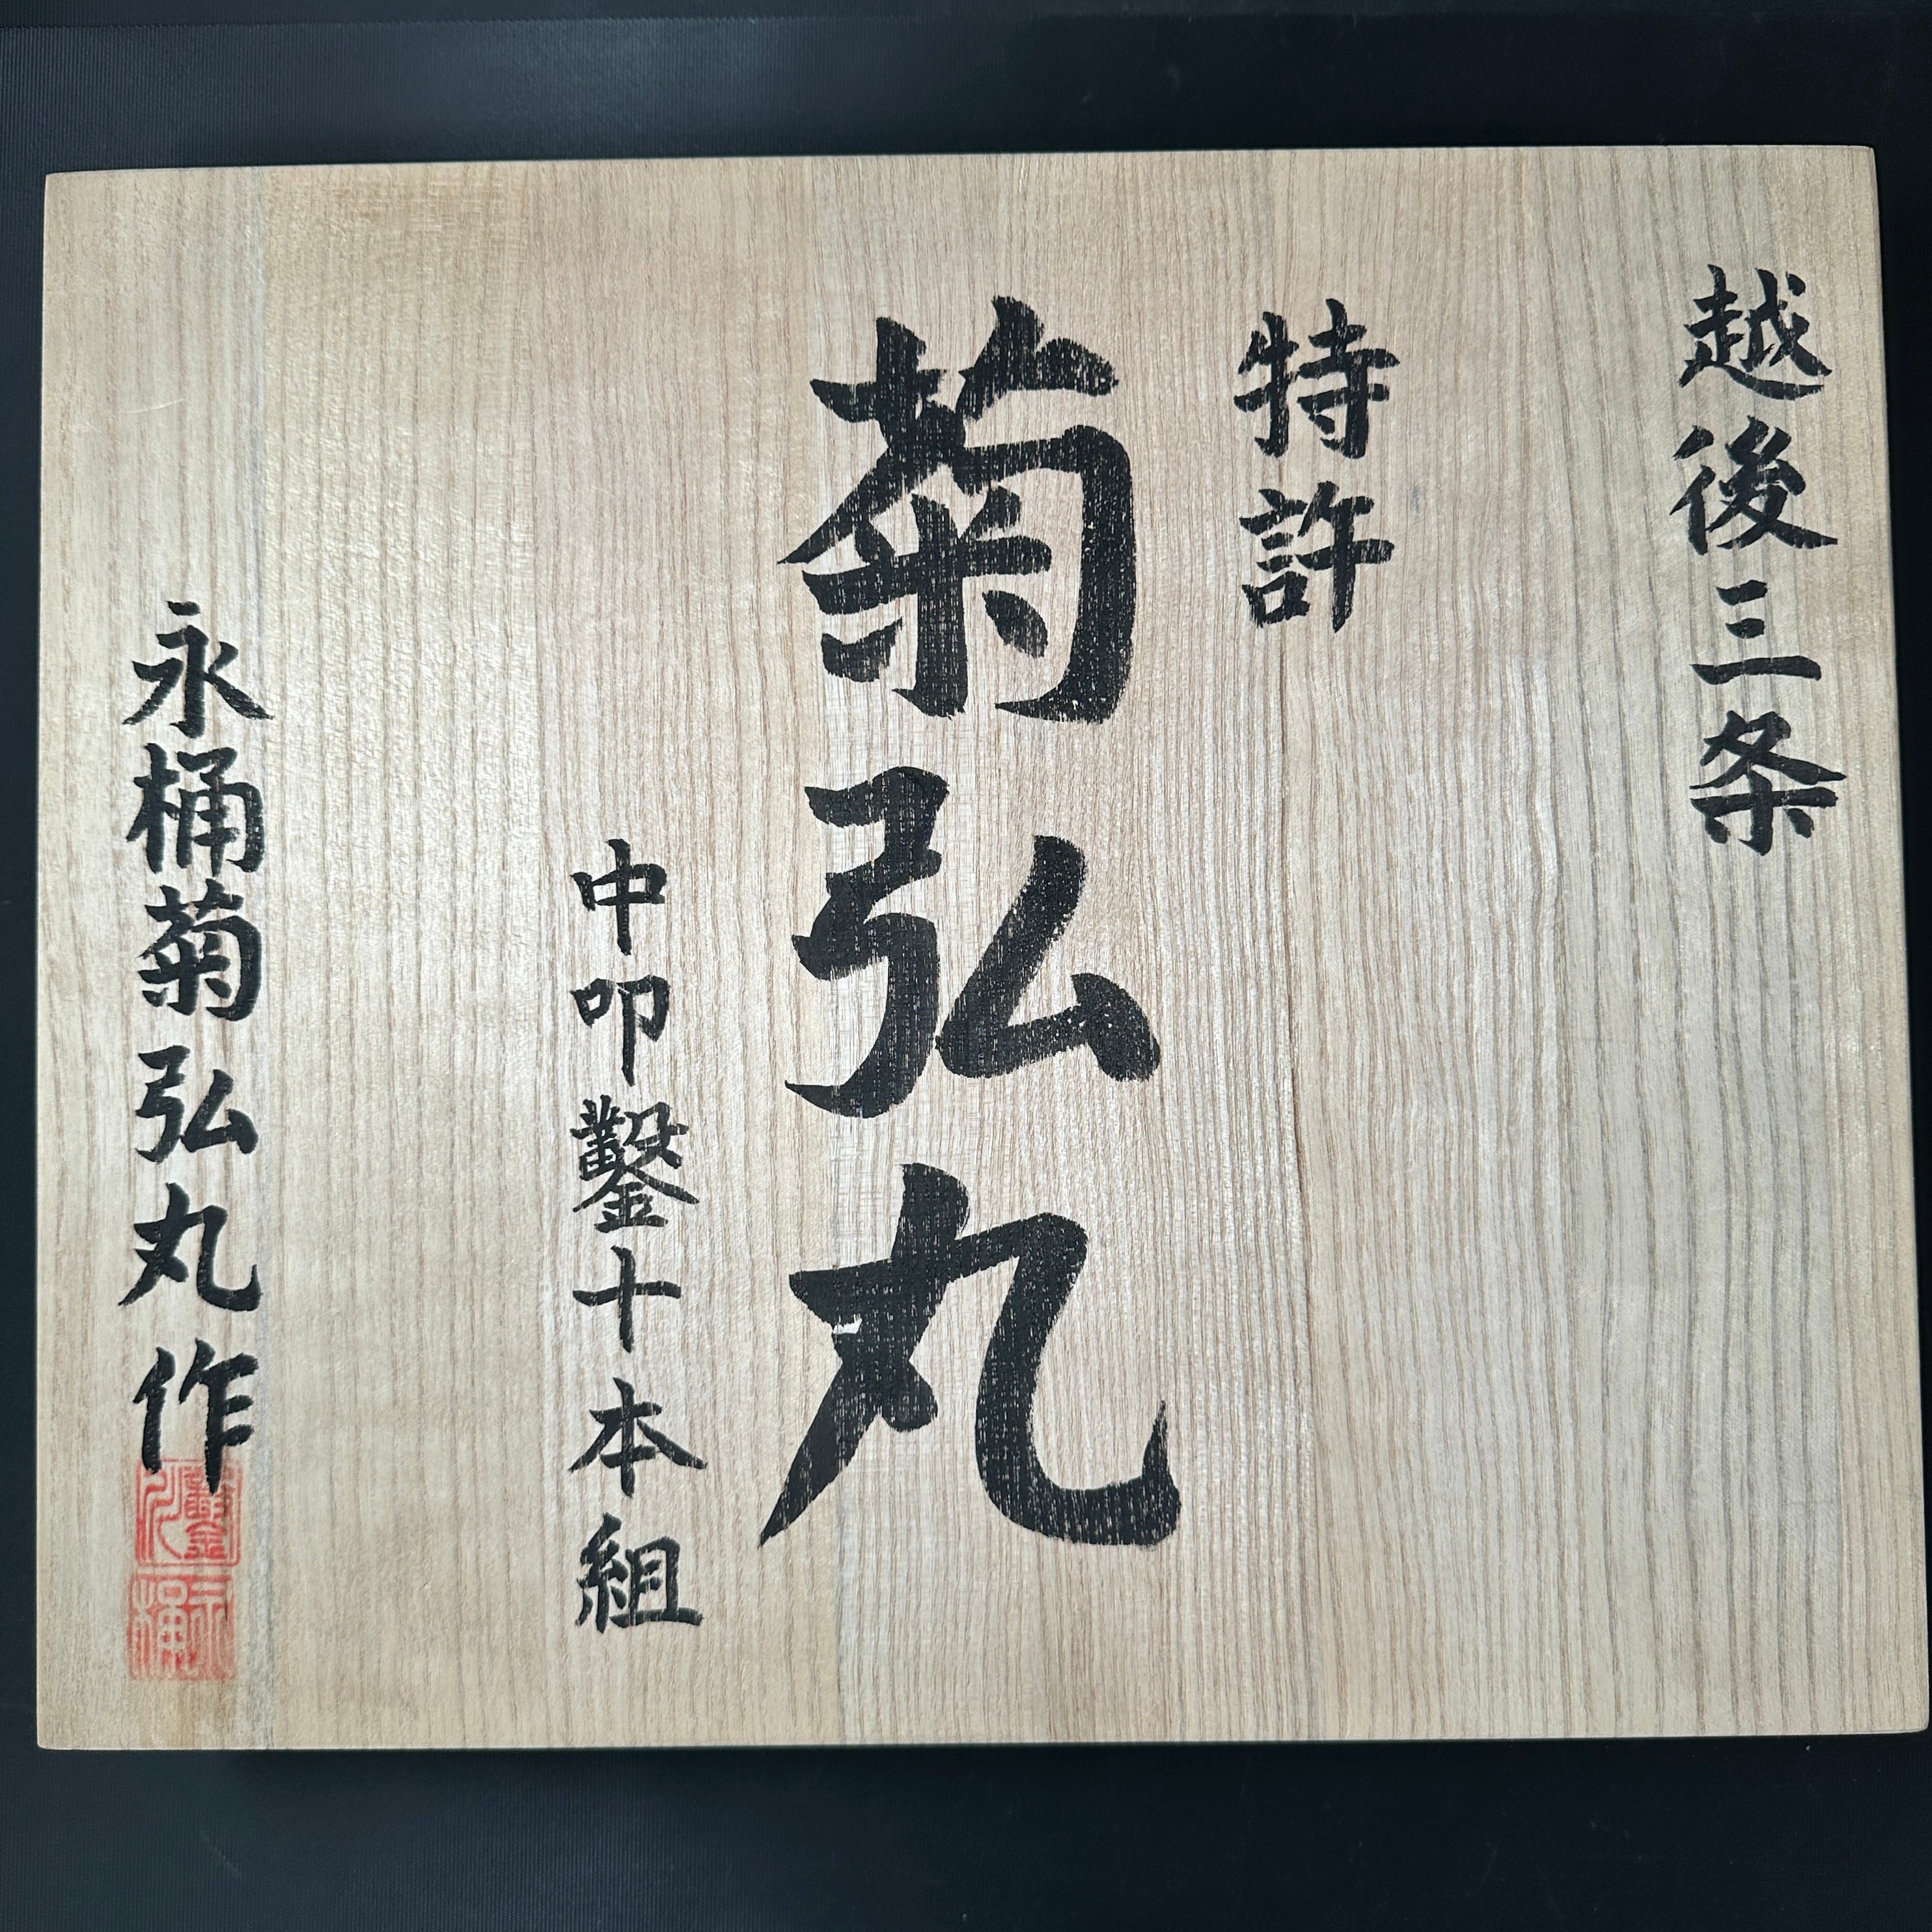 越後三条
特許
菊弘丸
中叩鑿十本組
永桶菊弘丸作